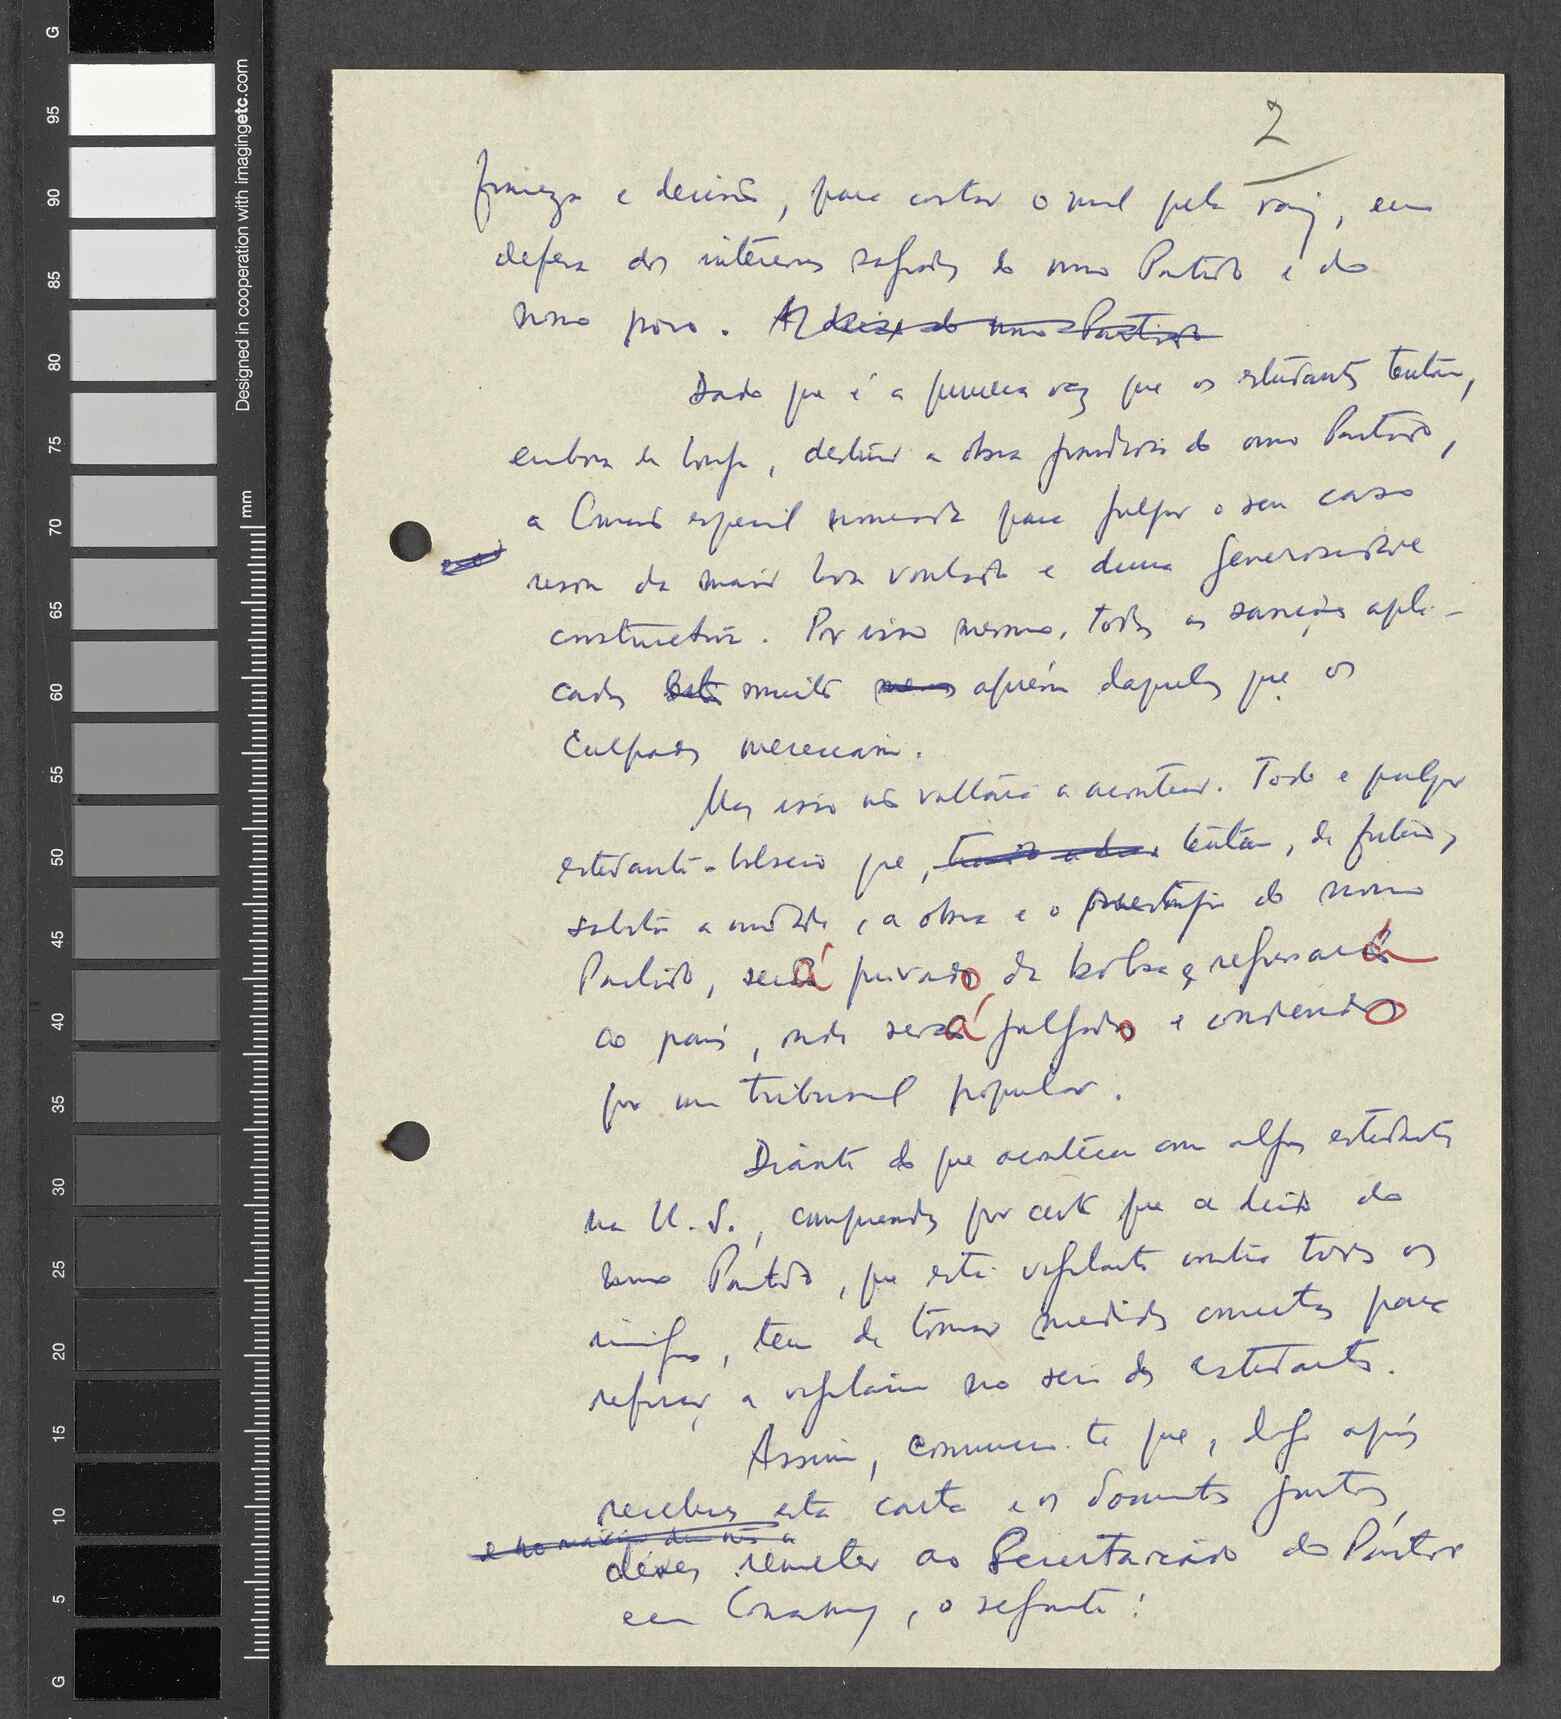 G
95
90
85
80
75
70
65
60
55
50
45
40
35
30
25
20
15
10
5
G
Designed in cooperation with imagingetc.com
mm
2
firmeza e decisão, para cortar o mal pela raiz, em
defesa dos interesses sagrados do nosso Partido e do
nosso povo. A do nosso Partido
Dado que é a primeira vez que os estudantes tentam,
embora de longe, destruir a obra grandiosa do nosso Partido,
a Comissão especial nomeada para julgar o seu caso
usou da maior boa vontade e duma generosidade
construtiva. Por isso mesmo, todas as sanções apli-
cadas muito aquém daquelas que os
culpados mereciam.
Mas isso não voltará a acontecer. Todo e qualquer
estudante-bolseiro que, tentar, de futuro,
sabotar a unidade, a obra e o prestígio do nosso
Partido, será privado da bolsa e regressará
ao país, onde será julgado e condenado
por um tribunal popular.
Diante do que aconteceu com alguns estudantes
na U.S., compreendes por certo que a direcção do
nosso Partido, que está vigilante contra todos os
inimigos, tem de tomar medidas concretas para
reforçar a vigilância no seio dos estudantes.
Assim, comunico-te que, logo após
receberes esta carta e os documentos juntos,
e no máximo
deves remeter ao Secretariado do Partido
em Conakry, o seguinte: